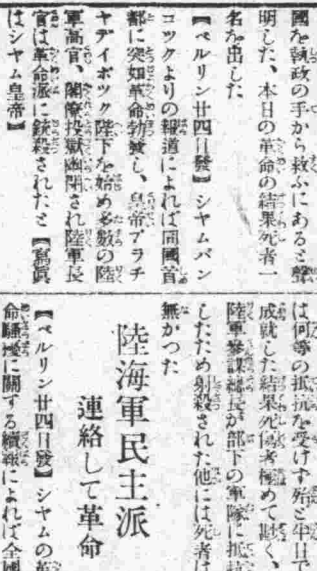 國を執政の手から救ふにあると聲
明した、本日の革命の結果死者一
名を出した
【ベルリン廿四日發】シヤムバン
コツクよりの報道によれば同國首
都に突如革命勃發し、皇帝プラチ
ヤデイポツク陛下を始め多數の陸
軍高官、閣僚投獄幽閉され陸軍長
官は革命派に銃殺されたと【寫眞
はシヤム皇帝】
は何等の抵抗を受けず殆と半日で
成就した結果死傷者極めて尠く、
陸軍參謀總長が部下の軍隊に抵抗
したため射殺された他には死者は
無かつた
陸海軍民主派
連絡して革命
【ベルリン廿四日發】シヤムの革
命騷擾に關する續報によれば全國